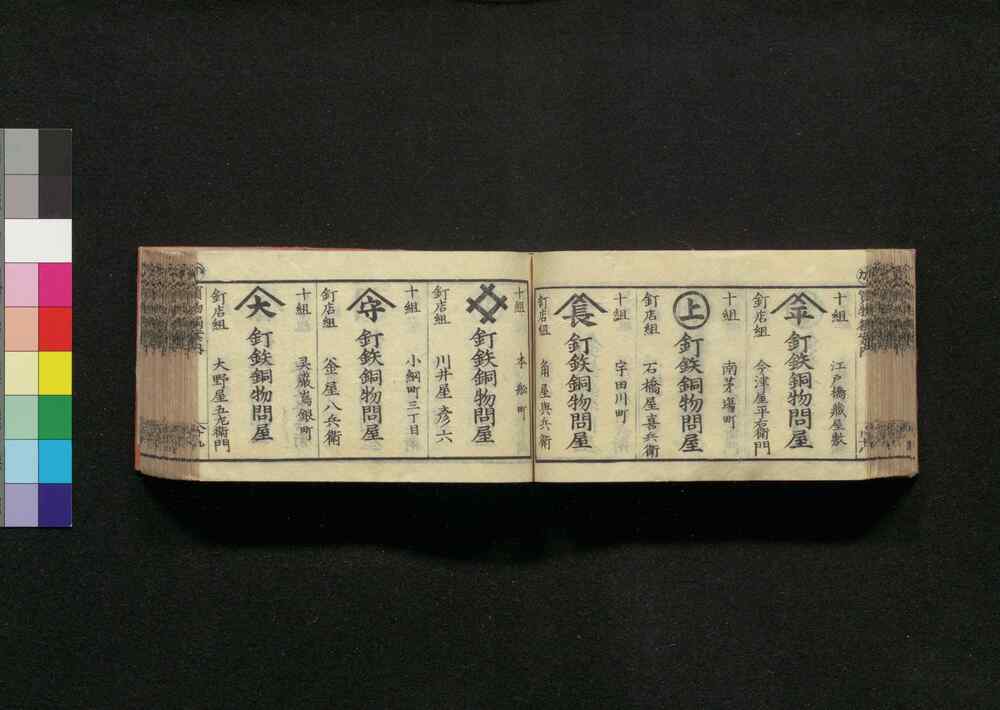 十組 江戸橋蔵屋敷
平 釘鉄銅物問屋
釘店組 今津屋平右衛門
十組 南茅場町
上 釘鉄銅物問屋
釘店組 石橋屋喜兵衛
十組 宇田川町
長 釘鉄銅物問屋
釘店組 角屋與兵衛
十組 本舩町
釘鉄銅物問屋
釘店組 川井屋彦六
十組 小網町三丁目
守 釘鉄銅物問屋
釘店組 釜屋八兵衛
十組 㚑巌嶌銀町
大 釘鉄銅物問屋
釘店組 大野屋五左衛門